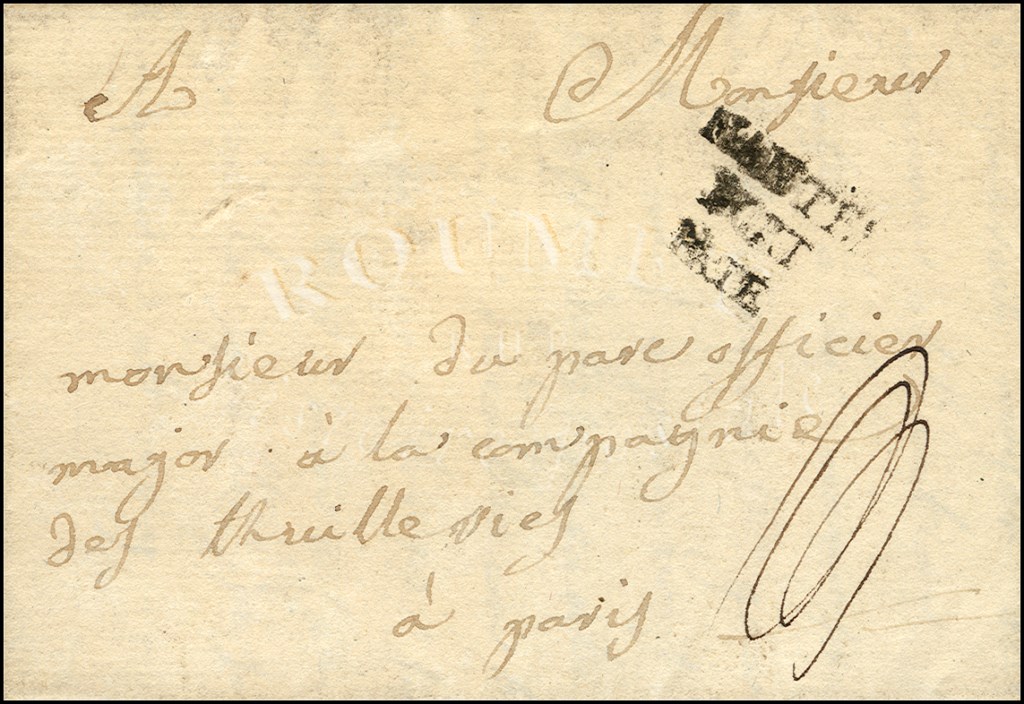 A Monsieur
NANTEI
ROUMET
monsieur du parc officier
major à la compagnie
des thuilleries
à paris